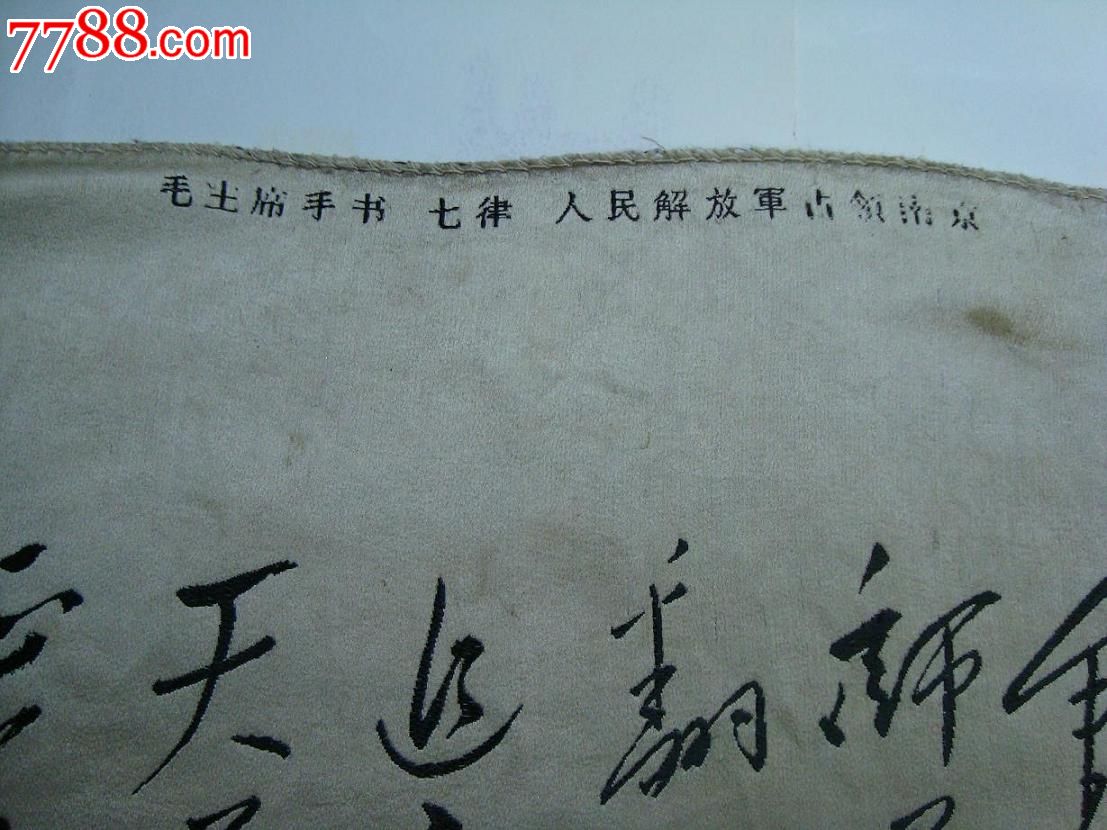 7788.com
毛主席手书 七律 人民解放軍占領南京
师
翻
追
天